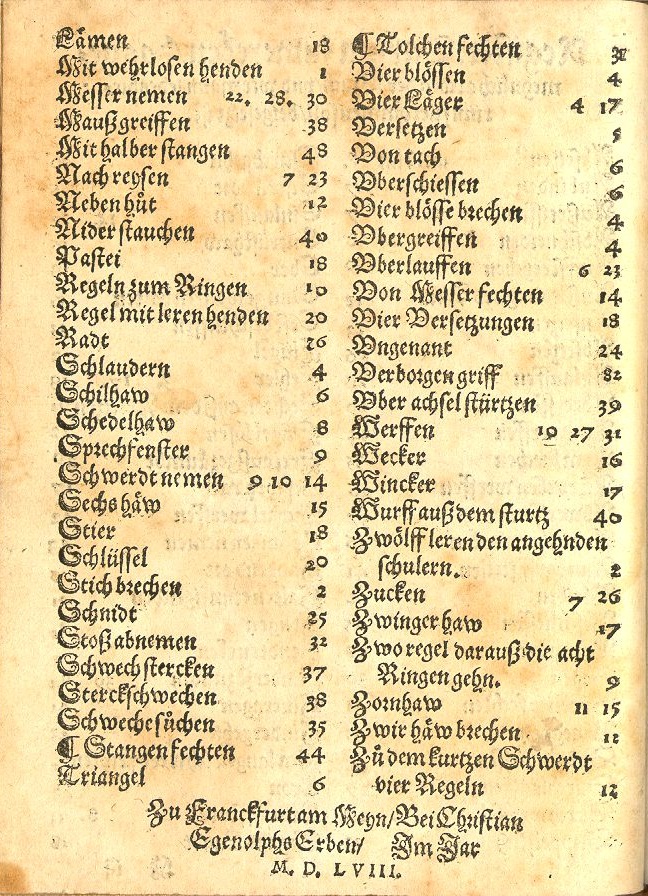 Lämen 18
Mit wehrlosen henden 1
Messer nemen 22. 28. 30
Maußgreiffen 38
Mit halber stangen 48
Nachreysen 7 23
Neben hüt 12
Nider stauchen 40
Pastei 18
Regeln zum Ringen 10
Regel mit leren henden 20
Radt 26
Schlaudern 4
Schilhaw 6
Schedelhaw 8
Sprechfenster 9
Schwerdt nemen 9 10 14
Sechs häw 15
Stier 18
Schlüssel 20
Stich brechen 2
Schnidt 25
Stoß abnemen 32
Schwech stercken 37
Sterck schwechen 38
Schweche sůchen 35
¶ Stangen fechten 44
Triangel 6
¶ Tolchen fechten
Vier blössen 4
Vier Läger 4 17
Versetzen 5
Von tach 6
Vberschiessen 6
Vier blösse brechen 4
Vbergreiffen 4
Vberlauffen 6 23
Von Messer fechten 14
Vier Versetzungen 18
Vngenant 24
Verborgen griff 82
Vber achsel stürtzen 39
Werffen 19 27 31
Wecker 16
Wincker 17
Wurff auß dem sturtz 40
Zwölff leren den angehnden
schulern. 2
Zucken 7 26
Zwinger haw 17
Zwo regel darauß die acht
Ringen gehn. 9
Zornhaw 11 15
Zwir häw brechen 11
Zů dem kurtzen Schwerdt
vier Regeln 12
Zu Franckfurt am Meyn/ Bei Christian
Egenolphs Erben/ Im Jar
M. D. LVIII.